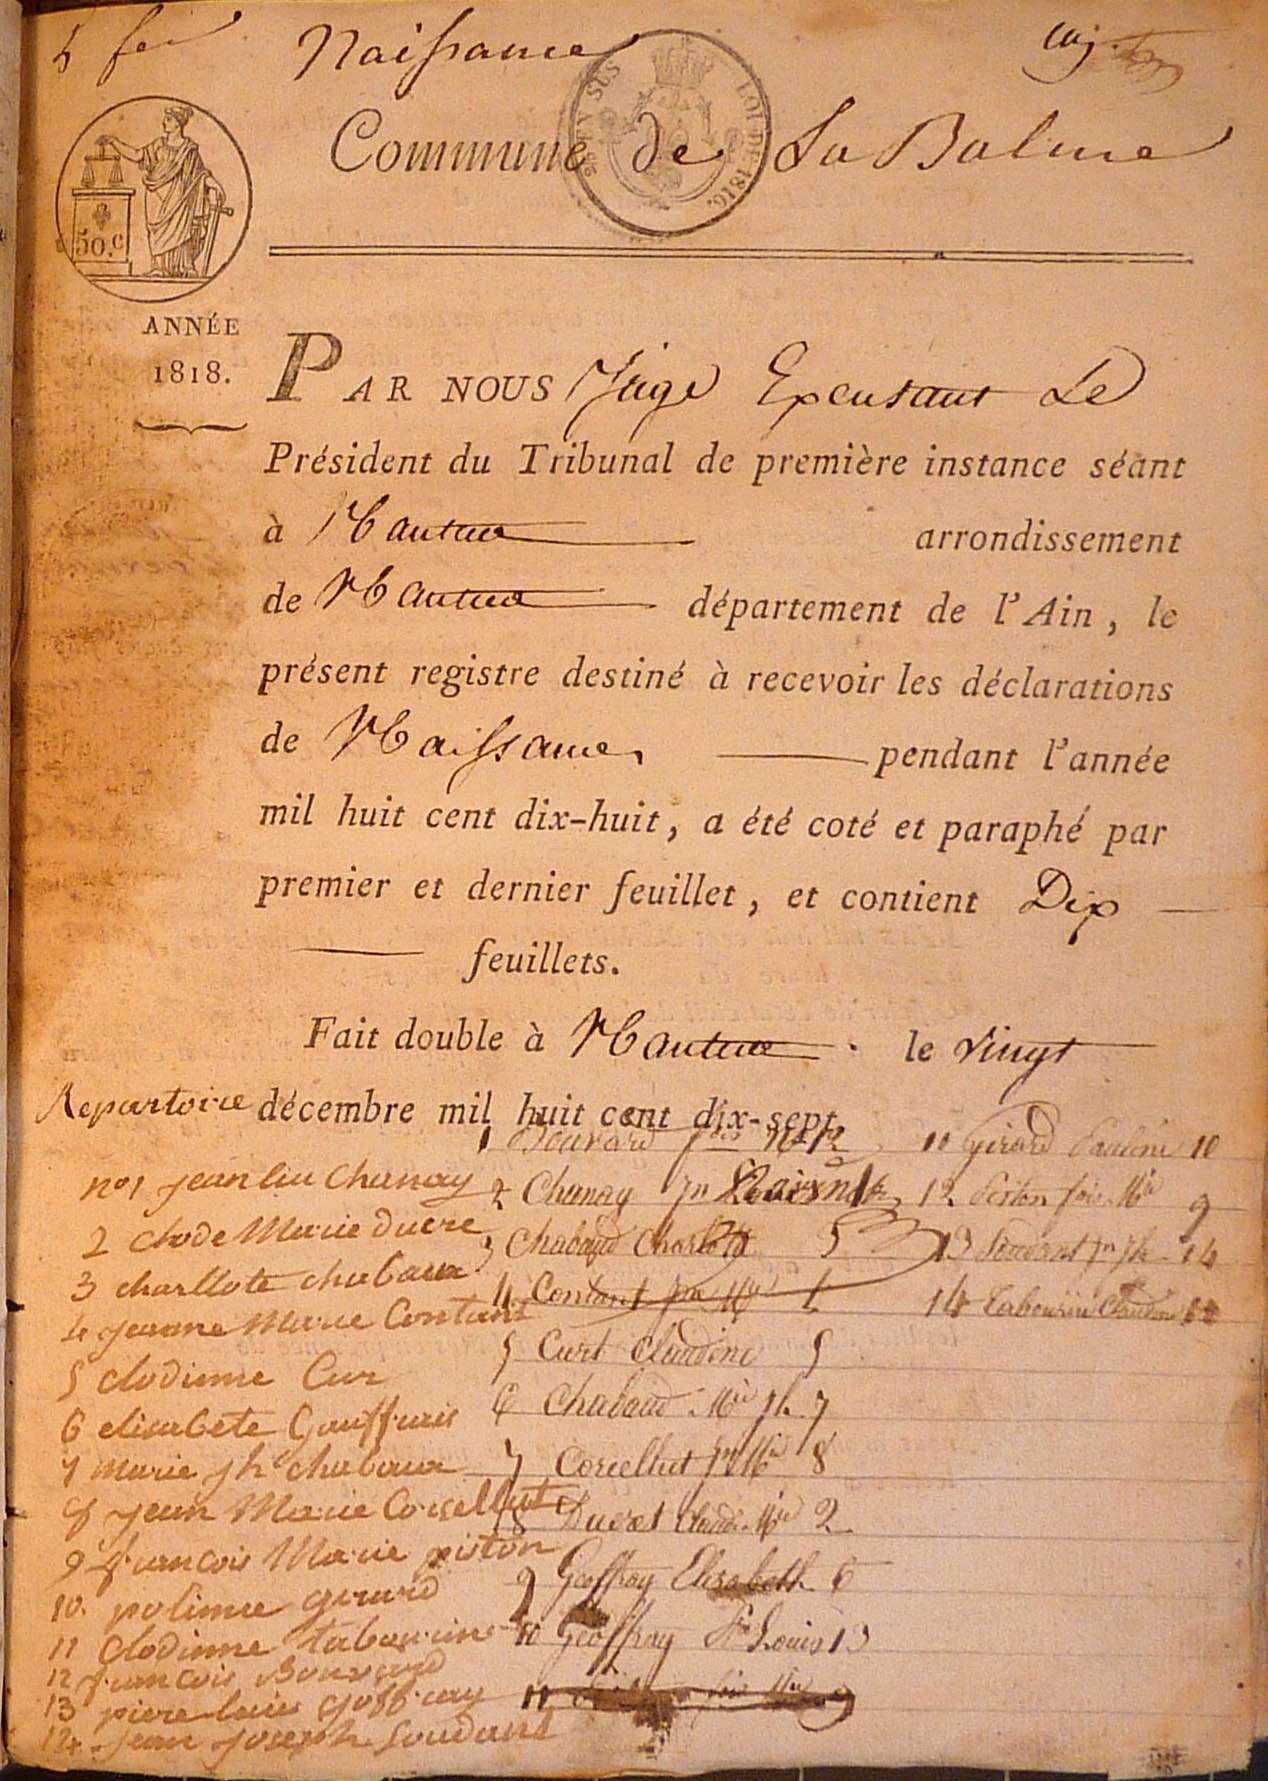 Naissance
Commune de La Balme
50.C
LOI DE 1816.
ANNÉE
1818.
PAR NOUS Juge Expeusant Le
Président du Tribunal de première instance séant
à Nantua arrondissement
de Nantua département de l'Ain, le
présent registre destiné à recevoir les déclarations
de Naissance pendant l'année
mil huit cent dix-huit, a été coté et paraphé par
premier et dernier feuillet, et contient Dix
feuillets.
Fait double à Nantua le vingt
décembre mil huit cent dix-sept.
Repartoire
n° 1 jean Chanay
2 clode Marie ducre
3 charllote chabaux
4 jeanne Marie Contant
5 clodinne Cur
6 elisabete Gauffrais
7 marie jh chabaux
8 jean Marie Corsellut
9 francois Marie piston
10 polinne girard
11 Clodinne tabourin
12 francois Bouvard
13 piere louis goffray
14 jean joseph Soudant
1 Bouvard fois 12
2 Chanay Jn Louis 1
3 Chabaud Charlote 3
4 Contant Jne Mie 4
5 Curt Claudine 5
6 Chabaud Mie Jh 7
7 Corcellut Jn Mie 8
8 Ducret Claude Mie 2
9 Geoffray Elisabeth 6
10 Geoffray Louis 13
11 9
11 Girard Pauline 10
12 Piston fois Mie 9
13 Soudant Jn Jh 14
14 Tabourin Claudine